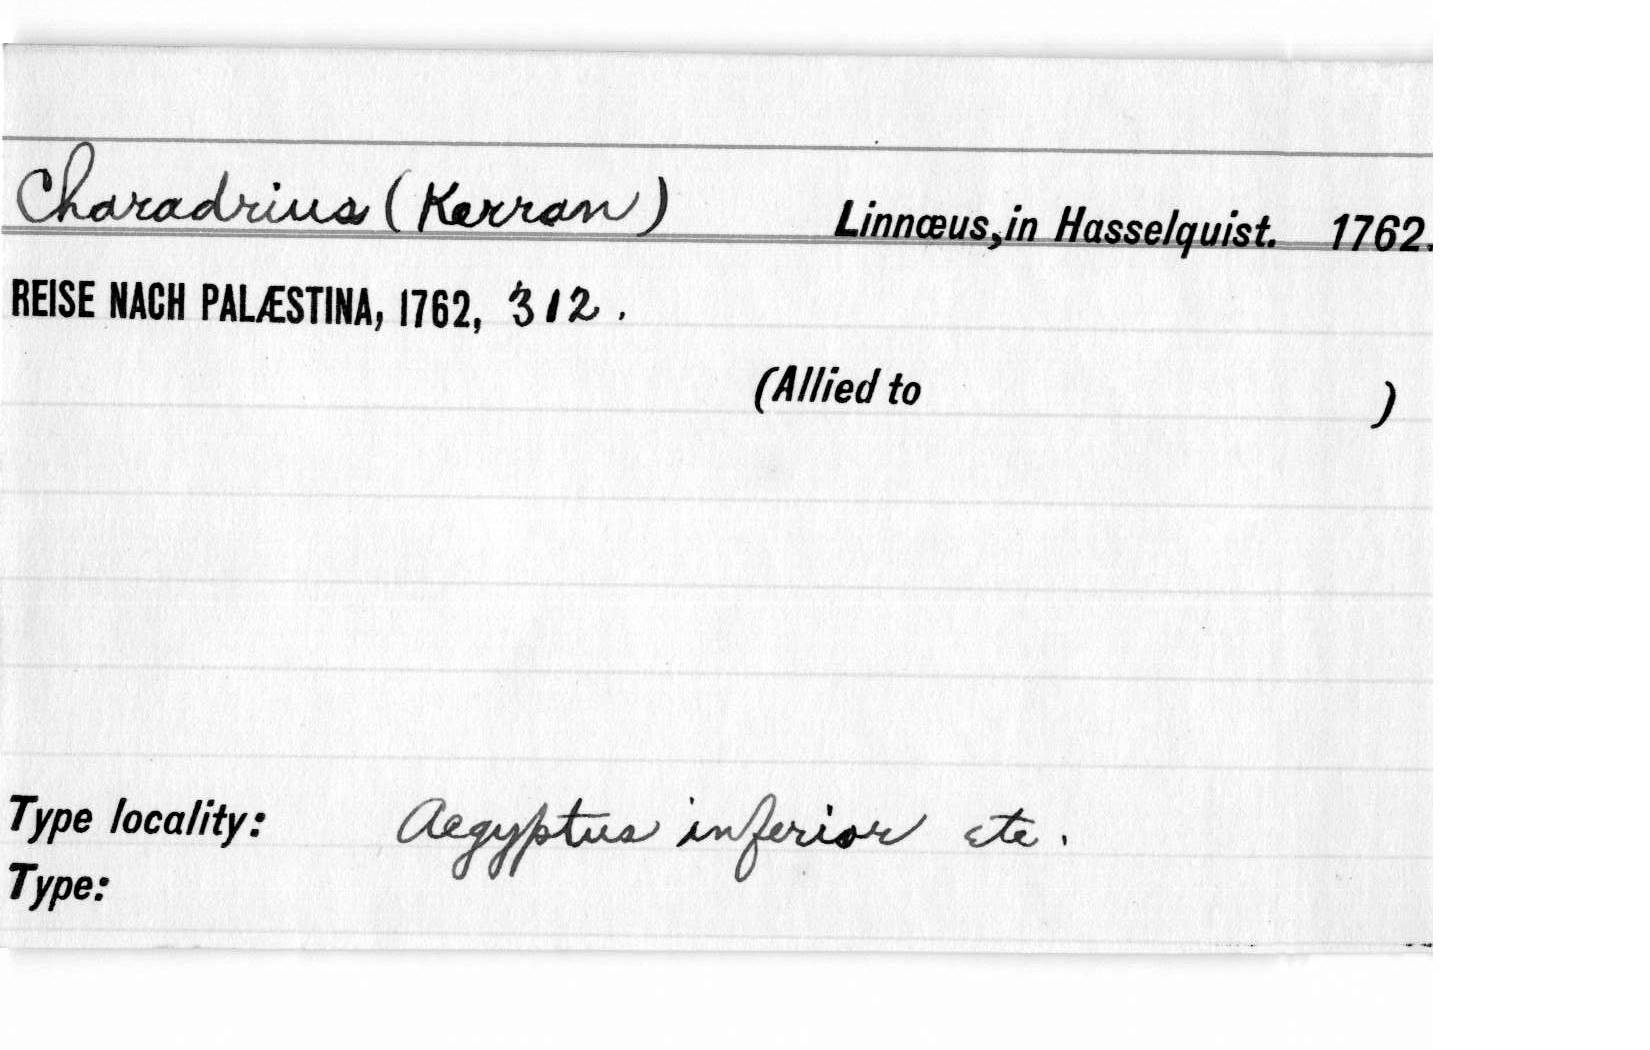 Charadrius (Kerran) Linnæus, in Hasselquist. 1762.
REISE NACH PALÆSTINA, 1762, 312.
(Allied to )
Type locality: Aegyptus inferior etc.
Type: